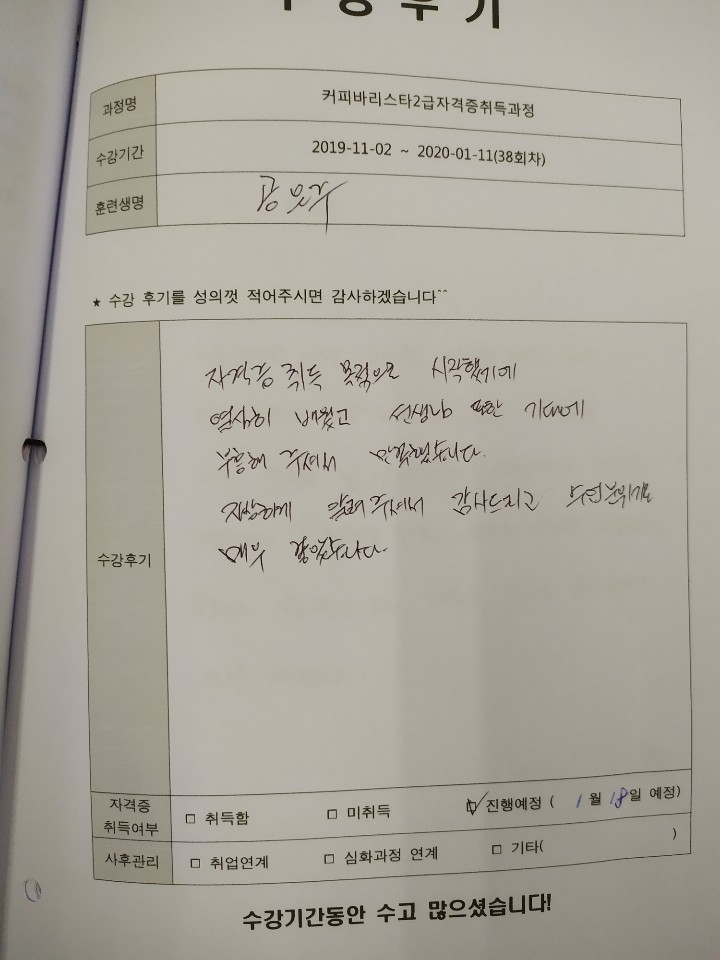 수강후기
과정명 커피바리스타2급자격증취득과정
수강기간 2019-11-02 ~ 2020-01-11(38회차)
훈련생명 공
★ 수강 후기를 성의껏 적어주시면 감사하겠습니다^^
자격증 취득 목적으로 시작했기에
열심히 배웠고 선생님 또한 기대에
부흥해 주셔서 만족했습니다.
수강후기
자상하게 알려주셔서 감사드리고 주변분위기도
매우 좋았습니다.
자격증 취득여부 □ 취득함 □ 미취득 ☑ 진행예정 ( 1월 18일 예정)
사후관리 □ 취업연계 □ 심화과정 연계 □ 기타( )
수강기간동안 수고 많으셨습니다!